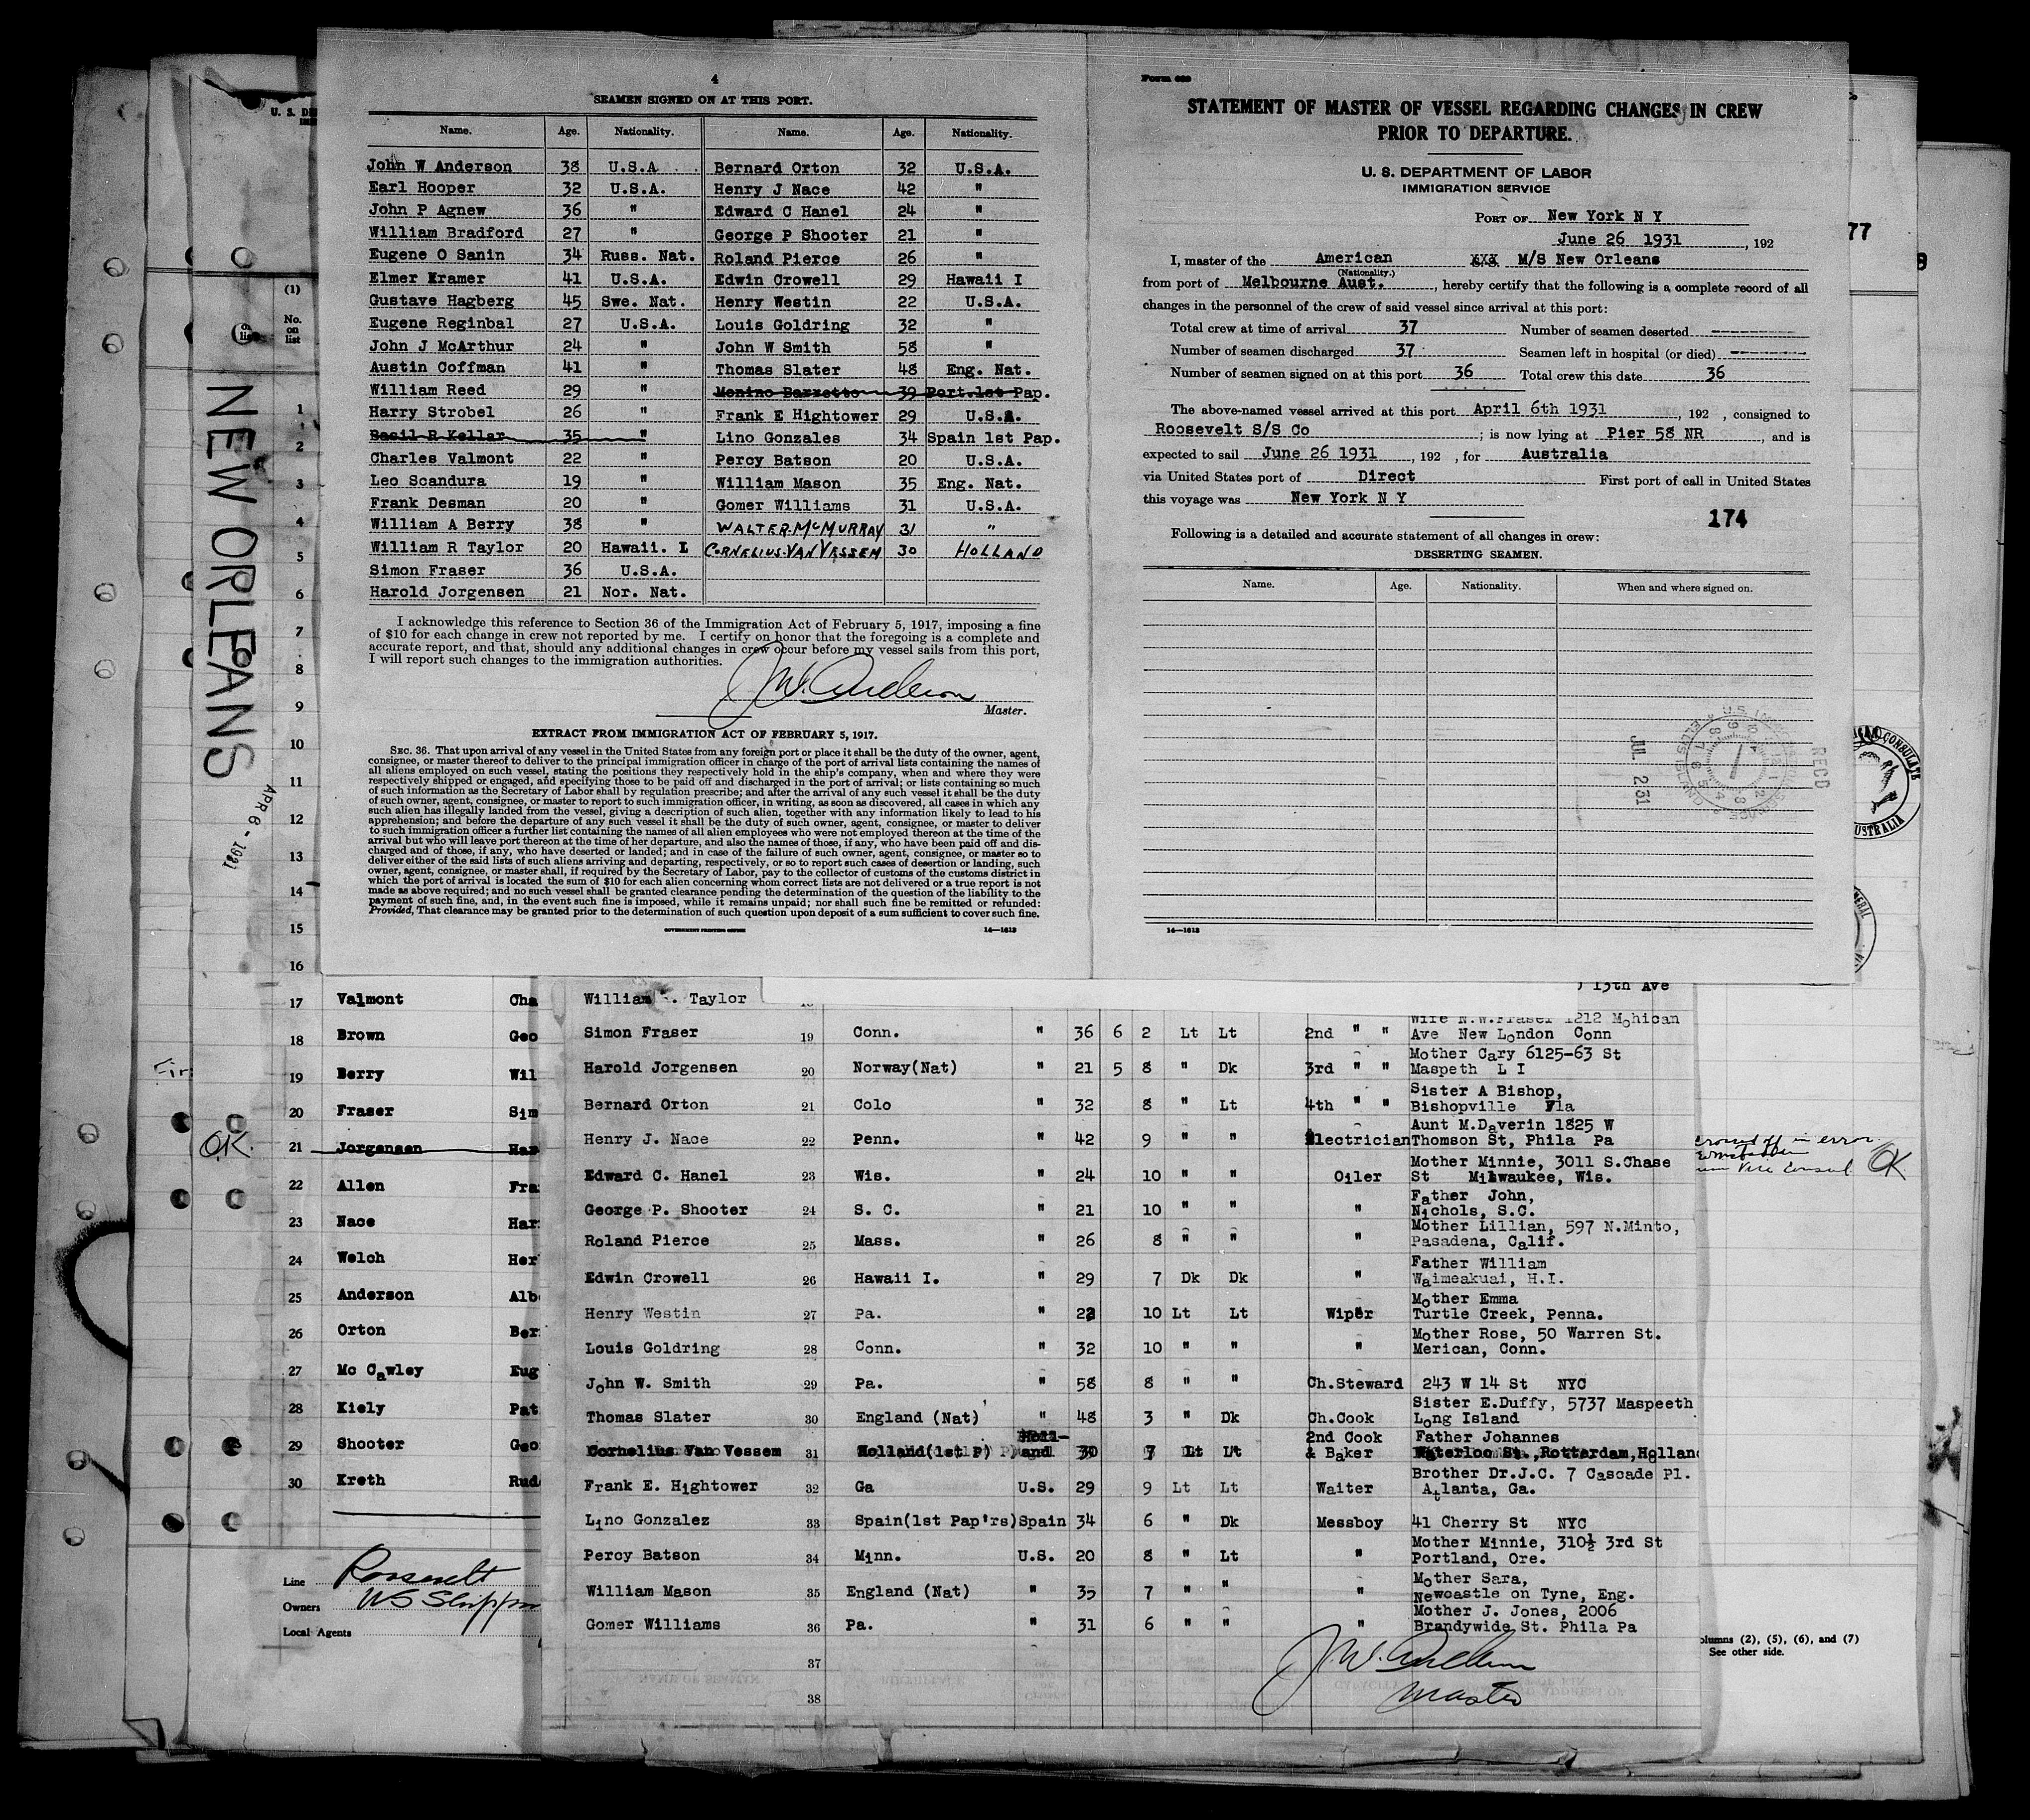 4
SEAMEN SIGNED ON AT THIS PORT.
Name. Age. Nationality. Name. Age. Nationality.
John W Anderson 38 U.S.A. Bernard Orton 32 U.S.A.
Earl Hooper 32 U.S.A. Henry J Nace 42 "
John P Agnew 36 " Edward C Hanel 24 "
William Bradford 27 " George P Shooter 21 "
Eugene O Sanin 34 Russ. Nat. Roland Pierce 26 "
Elmer Kramer 41 U.S.A. Edwin Crowell 29 Hawaii I
Gustave Hagberg 45 Swe. Nat. Henry Westin 22 U.S.A.
Eugene Reginbal 27 U.S.A. Louis Goldring 32 "
John J McArthur 24 " John W Smith 58 "
Austin Coffman 41 " Thomas Slater 48 Eng. Nat.
William Reed 29 " Menino Barretto 39 Port.1st Pap.
Harry Strobel 26 " Frank E Hightower 29 U.S.A.
Basil R Kellar 35 " Lino Gonzales 34 Spain 1st Pap.
Charles Valmont 22 " Percy Batson 20 U.S.A.
Leo Scandura 19 " William Mason 35 Eng. Nat.
Frank Desman 20 " Gomer Williams 31 U.S.A.
William A Berry 38 " WALTER McMURRAY 31 "
William R Taylor 20 Hawaii. I CORNELIUS VAN VESSEM 30 HOLLAND
Simon Fraser 36 U.S.A.
Harold Jorgensen 21 Nor. Nat.
I acknowledge this reference to Section 36 of the Immigration Act of February 5, 1917, imposing a fine
of $10 for each change in crew not reported by me. I certify on honor that the foregoing is a complete and
accurate report, and that, should any additional changes in crew occur before my vessel sails from this port,
I will report such changes to the immigration authorities.
J W. Anderson
Master.
EXTRACT FROM IMMIGRATION ACT OF FEBRUARY 5, 1917.
SEC. 36. That upon arrival of any vessel in the United States from any foreign port or place it shall be the duty of the owner, agent,
consignee, or master thereof to deliver to the principal immigration officer in charge of the port of arrival lists containing the names of
all aliens employed on such vessel, stating the positions they respectively hold in the ship's company, when and where they were
respectively shipped or engaged, and specifying those to be paid off and discharged in the port of arrival; or lists containing so much
of such information as the Secretary of Labor shall by regulation prescribe; and after the arrival of any such vessel it shall be the duty
of such owner, agent, consignee, or master to report to such immigration officer, in writing, as soon as discovered, all cases in which any
such alien has illegally landed from the vessel, giving a description of such alien, together with any information likely to lead to his
apprehension; and before the departure of any such vessel it shall be the duty of such owner, agent, consignee, or master to deliver
to such immigration officer a further list containing the names of all alien employees who were not employed thereon at the time of the
arrival but who will leave port thereon at the time of her departure, and also the names of those, if any, who have been paid off and dis-
charged and of those, if any, who have deserted or landed; and in case of the failure of such owner, agent, consignee, or master so to
deliver either of the said lists of such aliens arriving and departing, respectively, or so to report such cases of desertion or landing, such
owner, agent, consignee, or master shall, if required by the Secretary of Labor, pay to the collector of customs of the customs district in
which the port of arrival is located the sum of $10 for each alien concerning whom correct lists are not delivered or a true report is not
made as above required; and no such vessel shall be granted clearance pending the determination of the question of the liability to the
payment of such fine, and, in the event such fine is imposed, while it remains unpaid; nor shall such fine be remitted or refunded:
Provided, That clearance may be granted prior to the determination of such question upon deposit of a sum sufficient to cover such fine.
GOVERNMENT PRINTING OFFICE
14—1613
Form 689
STATEMENT OF MASTER OF VESSEL REGARDING CHANGES IN CREW
PRIOR TO DEPARTURE.
U. S. DEPARTMENT OF LABOR
IMMIGRATION SERVICE
PORT OF New York N Y
June 26 1931, 192
I, master of the American XXX M/S New Orleans
(Nationality.)
from port of Melbourne Aust., hereby certify that the following is a complete record of all
changes in the personnel of the crew of said vessel since arrival at this port:
Total crew at time of arrival 37 Number of seamen deserted
Number of seamen discharged 37 Seamen left in hospital (or died)
Number of seamen signed on at this port 36 Total crew this date 36
The above-named vessel arrived at this port April 6th 1931, 192 , consigned to
Roosevelt S/S Co ; is now lying at Pier 58 NR, and is
expected to sail June 26 1931, 192 , for Australia
via United States port of Direct First port of call in United States
this voyage was New York N Y
174
Following is a detailed and accurate statement of all changes in crew:
DESERTING SEAMEN.
Name. Age. Nationality. When and where signed on.
RECD
JUL 2 31
14—1613
U. S. DE
(1)
No. on list
NEW ORLEANS
APR 6 - 1931
1
2
3
4
5
6
7
8
9
10
11
12
13
14
15
16
17 Valmont Cha
18 Brown Geo
19 Berry Wil
20 Fraser Sim
OK. 21 Jorgensen Har
22 Allen Fra
23 Nace Har
24 Welch Her
25 Anderson Alb
26 Orton Ber
27 Mc Cawley Eug
28 Kiely Pat
29 Shooter Geo
30 Kreth Rud
Line Roosevelt
Owners US Shippin
Local Agents
William . Taylor 13th Ave
Wife N.W.Fraser 1212 Mohican
Simon Fraser 19 Conn. " 36 6 2 Lt Lt 2nd " " Ave New London Conn
Mother Cary 6125-63 St
Harold Jorgensen 20 Norway(Nat) " 21 5 8 " Dk 3rd " " Maspeth L I
Sister A Bishop,
Bernard Orton 21 Colo " 32 8 " Lt 4th " " Bishopville Fla
Aunt M.Daverin 1825 W
Henry J. Nace 22 Penn. " 42 9 " " Electrician Thomson St, Phila Pa
Mother Minnie, 3011 S.Chase
Edward C. Hanel 23 Wis. " 24 10 " " Oiler St Milwaukee, Wis.
Father John,
George P. Shooter 24 S. C. " 21 10 " " " Nichols, S.C.
Mother Lillian, 597 N.Minto,
Roland Pierce 25 Mass. " 26 8 " " " Pasadena, Calif.
Father William
Edwin Crowell 26 Hawaii I. " 29 7 Dk Dk " Waimeakuai, H.I.
Mother Emma
Henry Westin 27 Pa. " 22 10 Lt Lt Wiper Turtle Creek, Penna.
Mother Rose, 50 Warren St.
Louis Goldring 28 Conn. " 32 10 " " " Merican, Conn.
John W. Smith 29 Pa. " 58 8 " " Ch.Steward 243 W 14 St NYC
Sister E.Duffy, 5737 Maspeeth
Thomas Slater 30 England (Nat) " 48 3 " Dk Ch.Cook Long Island
Holl- 2nd Cook Father Johannes
Cornelius Van Vessem 31 Holland(1st P) and 30 7 Lt Lt & Baker Waterloo St.,Rotterdam,Holland
Brother Dr.J.C. 7 Cascade Pl.
Frank E. Hightower 32 Ga U.S. 29 9 Lt Lt Waiter Atlanta, Ga.
Lino Gonzalez 33 Spain(1st Pap'rs) Spain 34 6 " Dk Messboy 41 Cherry St NYC
Mother Minnie, 310½ 3rd St
Percy Batson 34 Minn. U.S. 20 8 " Lt " Portland, Ore.
Mother Sara,
William Mason 35 England (Nat) " 35 7 " " " Newcastle on Tyne, Eng.
Mother J. Jones, 2006
Gomer Williams 36 Pa. " 31 6 " " " Brandywide St. Phila Pa
37
38
J. W. Anderson
Master
77
crossed off in error
Vice Consul OK
CONSULATE
AUSTRALIA
olumns (2), (5), (6), and (7)
See other side.